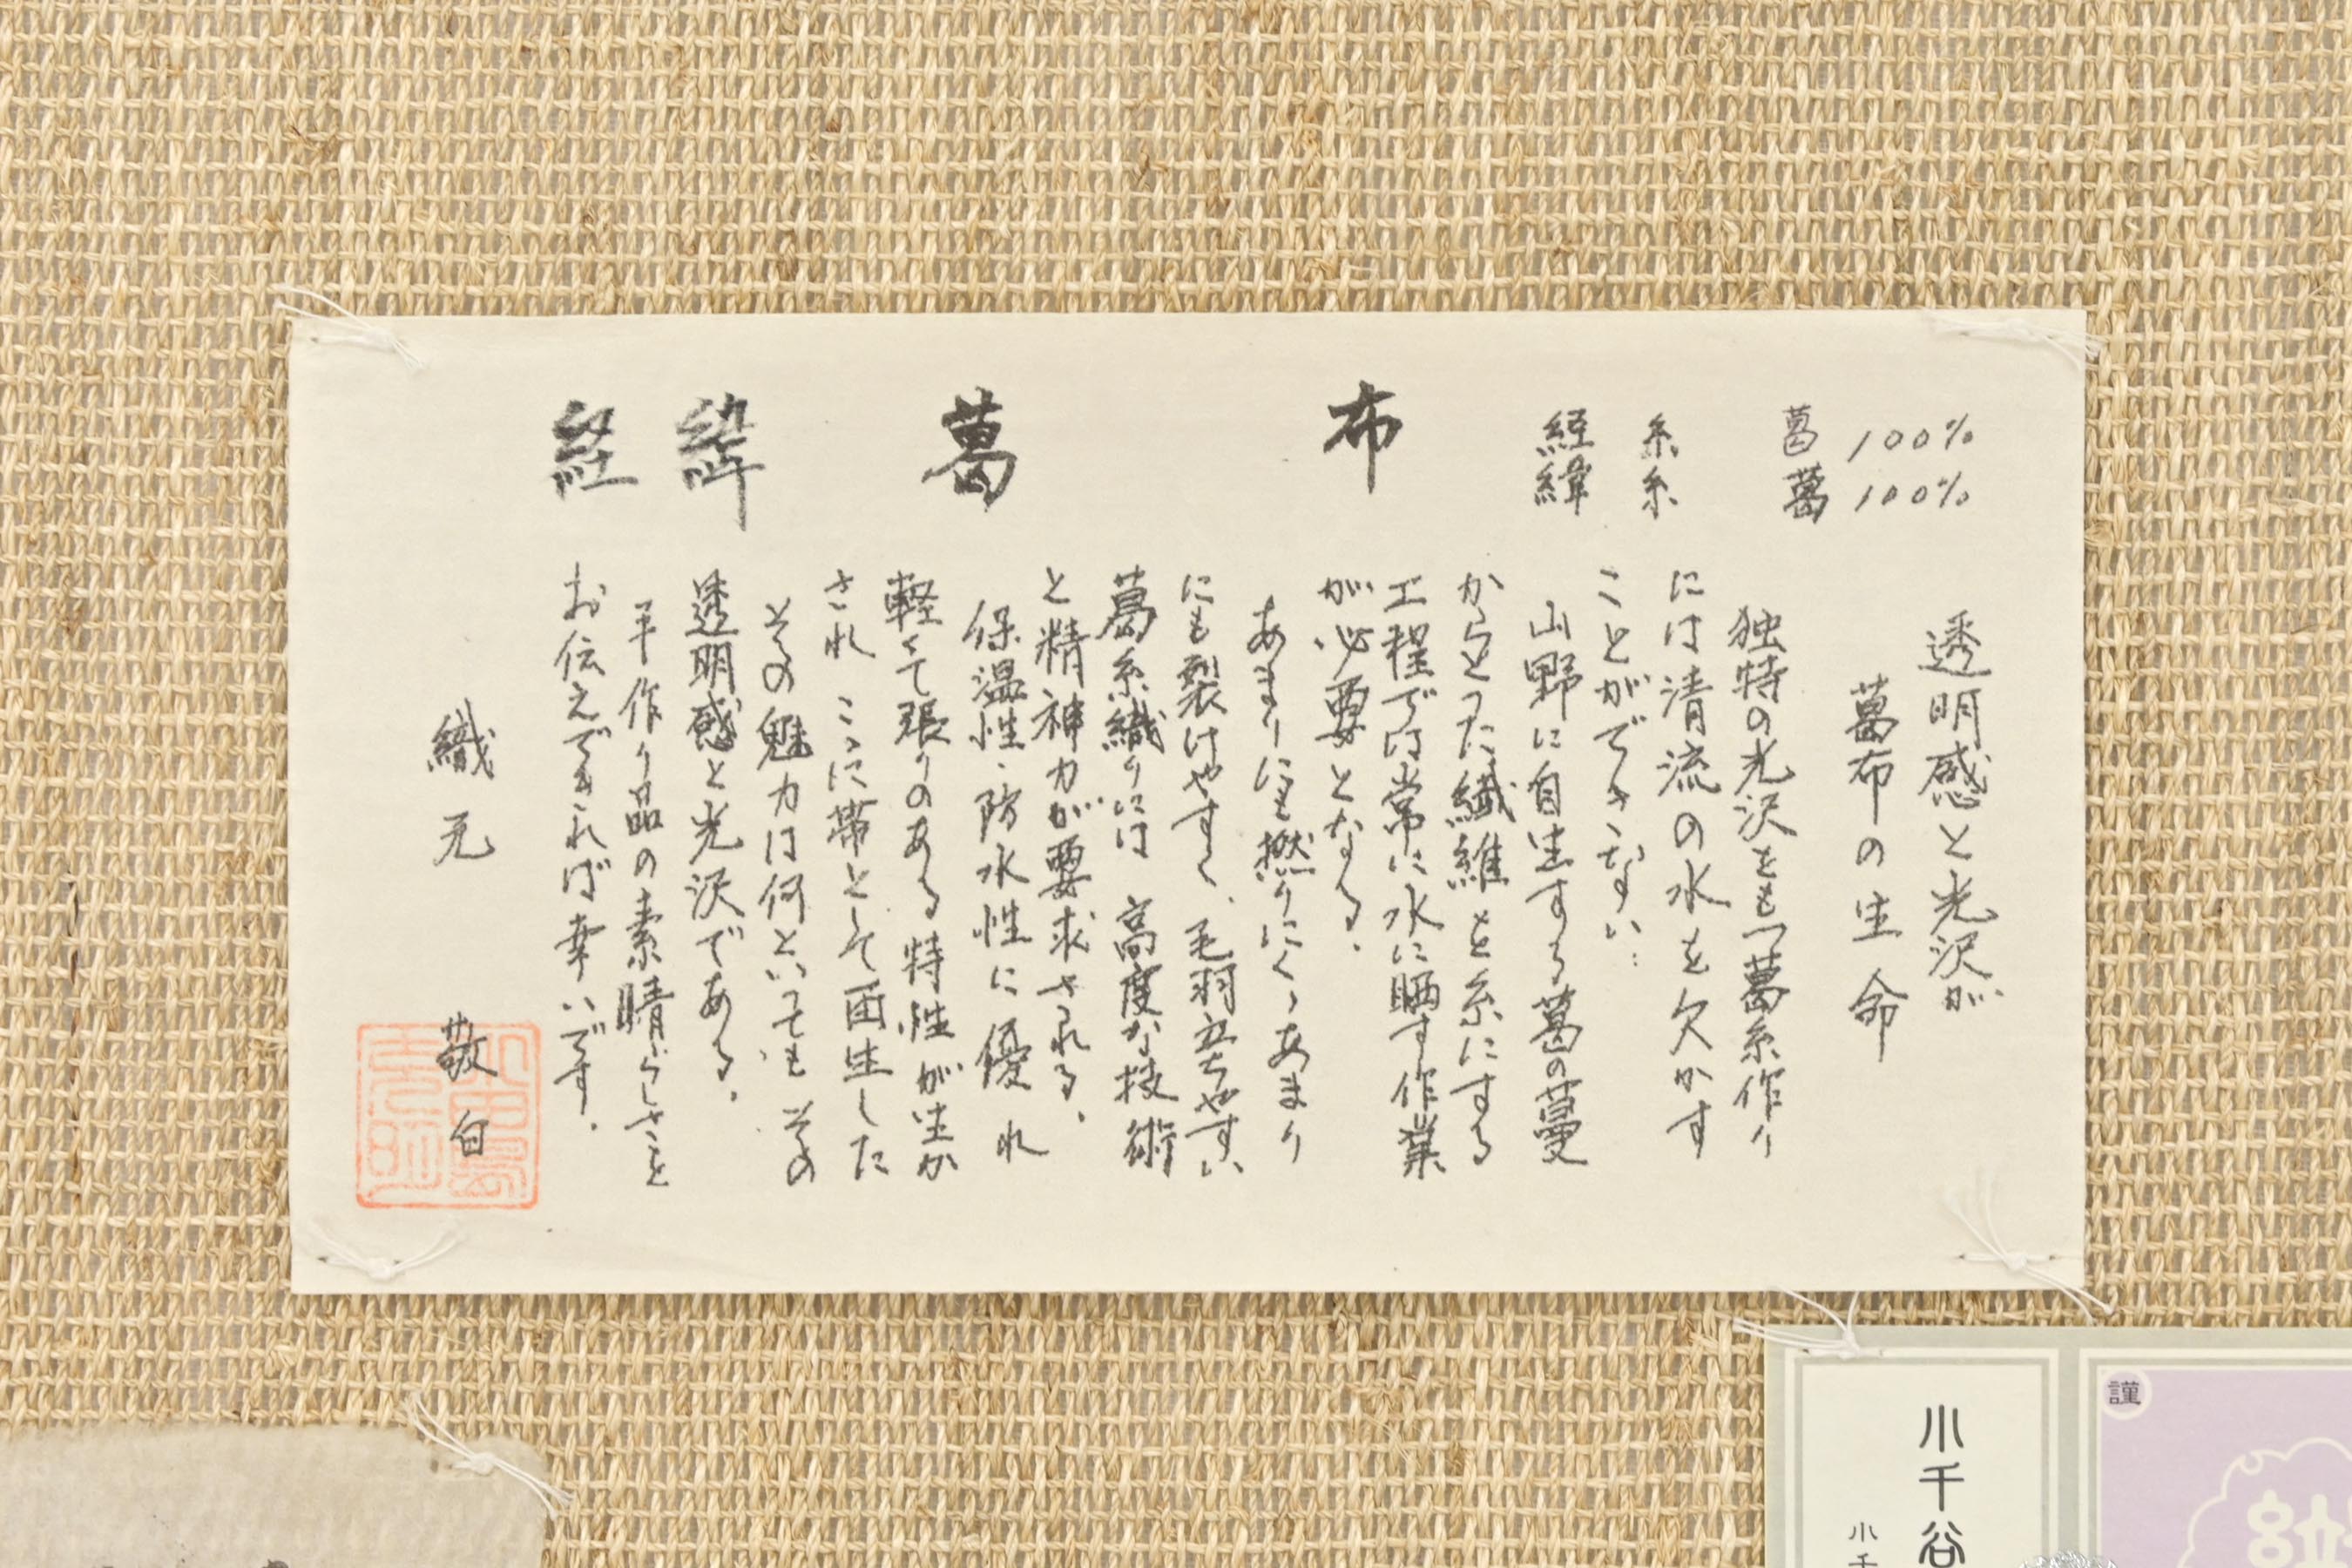 経緯 葛 布
経糸 葛 100%
緯糸 葛 100%
透明感と光沢が
葛布の生命
独特の光沢をもつ葛糸作り
には清流の水を欠かす
ことができない…
山野に自生する葛の蔓
からとった繊維を糸にする
工程では常に水に晒す作業
が必要となる。
あまりにも撚りにくゝあまり
にも裂けやすく、毛羽立ちやすい
葛糸織りには 高度な技術
と精神力が要求される。
保温性・防水性に優れ
軽くて張りのある特性が生か
され こゝに帯として再生した
その魅力は何といっても その
透明感と光沢である。
手作り品の素晴らしさを
お伝えできれば幸いです。
織元 敬白
小千谷
小千
謹